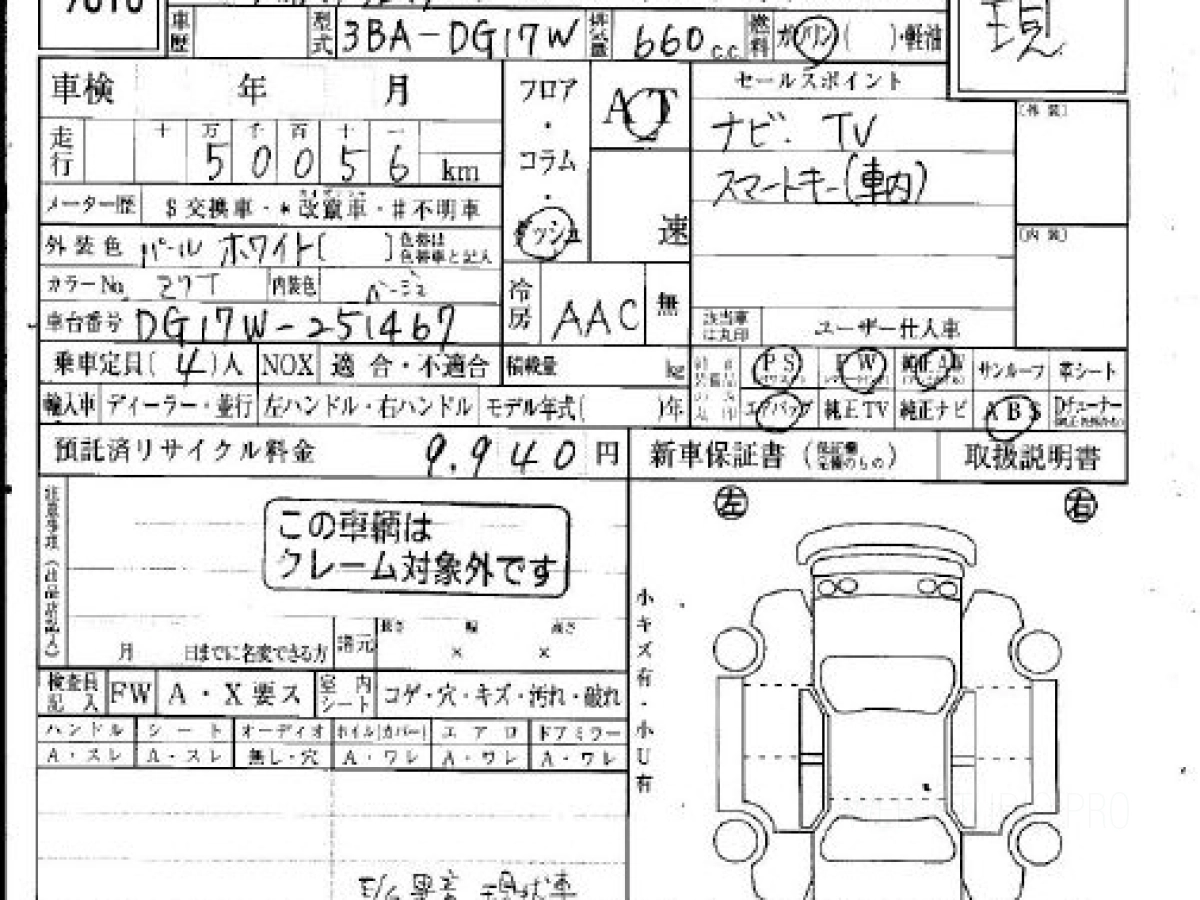 車歴 型式 3BA-DG17W 排気量 660 c.c. 燃料 ガソリン( )・軽油
現
車検 年 月
フロア・コラム・
AT
速
セールスポイント
ナビ. TV
スマートキー(車内)
[外装]
[内装]
走行 十 万 千 百 十 一
5 0 0 5 6 km
メーター歴 $交換車・*改竄車・#不明車
外装色 パール ホワイト[ ] 色替は色替車と記入
カラーNo. 内装色 ベージュ
冷房 AAC 無
車台番号 DG17W-251467
該当車は丸印 ユーザー仕入車
乗車定員( 4 )人 NOX 適合・不適合 積載量 kg
PS PW 純正AW サンルーフ 革シート
輸入車 ディーラー・並行 左ハンドル・右ハンドル モデル年式( )年
エアバッグ 純正TV 純正ナビ ABS Dチューナー
預託済リサイクル料金 9.940 円
新車保証書 取扱説明書
左 右
この車輌は
クレーム対象外です
月 日までに名変できる方 諸元 長さ × 幅 × 高さ
検査員記入 FW A・X要ス 室内シート コゲ・穴・キズ・汚れ・破れ
ハンドル シート オーディオ ホイル(カバー) エアロ ドアミラー
A・スレ A・スレ 無し・穴 A・ワレ A・ワレ A・ワレ
小キズ有・小U有
E/G異音 現状車